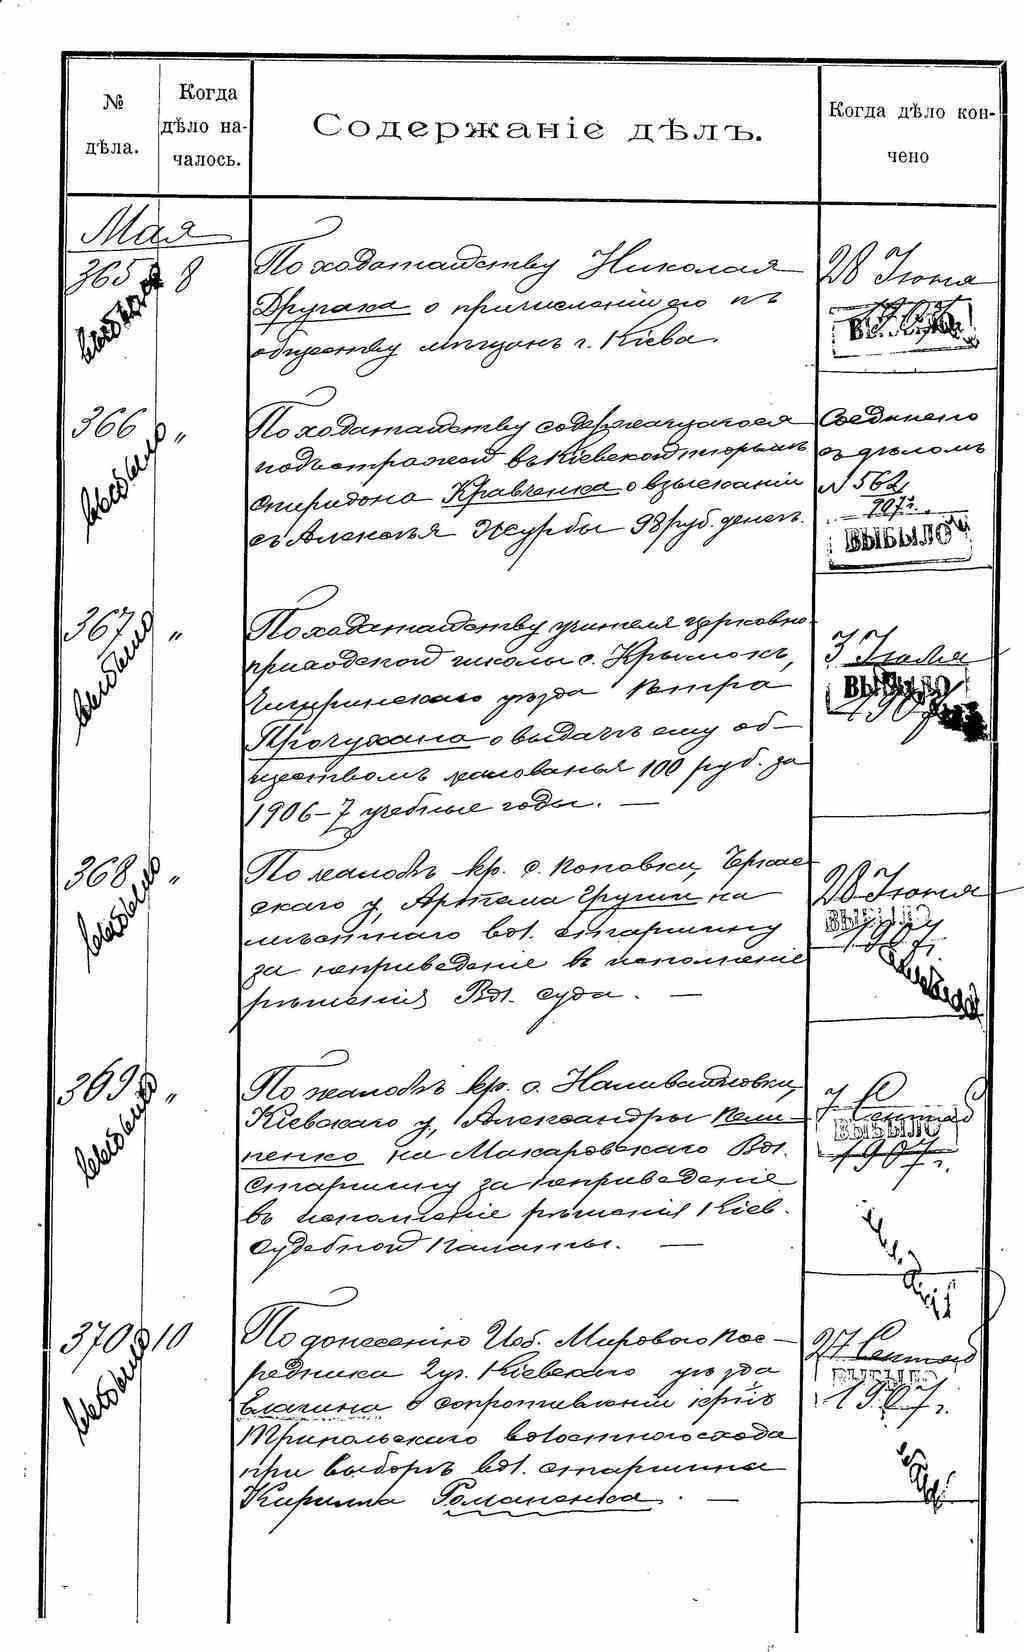 № дѣла.
Когда дѣло на-чалось.
Содержаніе дѣлъ.
Когда дѣло кон-чено
Мая
365 8
По ходатайству Николая
Другака о причисленіи его къ
обществу мѣщанъ г. Кіева.
28 Іюня
1907
выбыло
366 "
По ходатайству содержащагося
подъ стражей въ Кіевской тюрьмѣ
Спиридона Кравченка о взысканіи
съ Алексѣя Журбы 98 руб. денегъ.
Соединено
съ дѣломъ
N 562
907 г.
ВЫБЫЛО
367 "
По ходатайству учителя церковно-
приходской школы с. Крымокъ,
Чигиринскаго уѣзда Петра
Прочухана о выдачѣ ему об-
ществомъ жалованья 100 руб. за
1906-7 учебные годы. —
3 Іюля
ВЫБЫЛО
1907
368 "
По жалобѣ кр. с. Поповки, Черкас-
скаго у, Артема Грущи на
мѣстнаго вол. старшину
за неприведеніе въ исполненіе
рѣшенія Вол. суда. —
28 Іюня
ВЫБЫЛО
1907 г.
369 "
По жалобѣ кр. с. Наливайковки,
Кіевскаго у, Александры Пили-
пенко на Макаровскаго Вол.
Старшину за неприведеніе
въ исполненіе рѣшенія Кіев.
Судебной Палаты. —
7 Сентяб
ВЫБЫЛО
1907 г.
370 10
По донесенію Исб. Мирового Пос-
редника 2 уч. Кіевскаго уѣзда
Елагина о сопротивленіи кр-нъ
Трипольскаго волостного схода
при выборѣ вол. старшины
Кирилла Романенка. —
27 Сентяб
ВЫБЫЛО
1907 г.